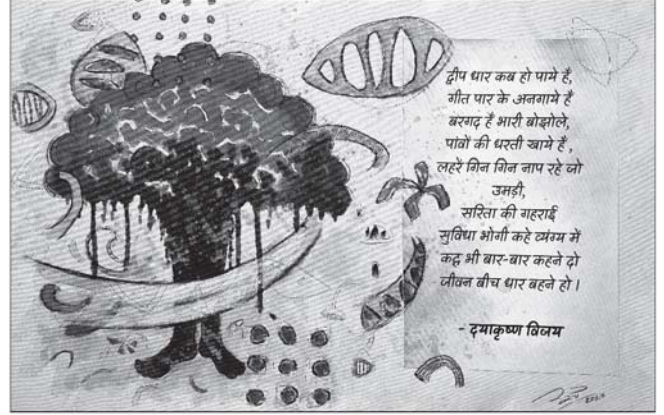 द्वीप धार कब हो पाये हैं,
गीत पार के अनगाये हैं
बरगद हैं भारी बोझोले,
पांवों की धरती खाये हैं ,
लहरें गिन गिन नाप रहे जो
उमड़ी,
सरिता की गहराई
सुविधा भोगी कहे व्यंग्य में
कद्ध भी बार-बार कहने दो
जीवन बीच धार बहने हो ।
- दयाकृष्ण विजय